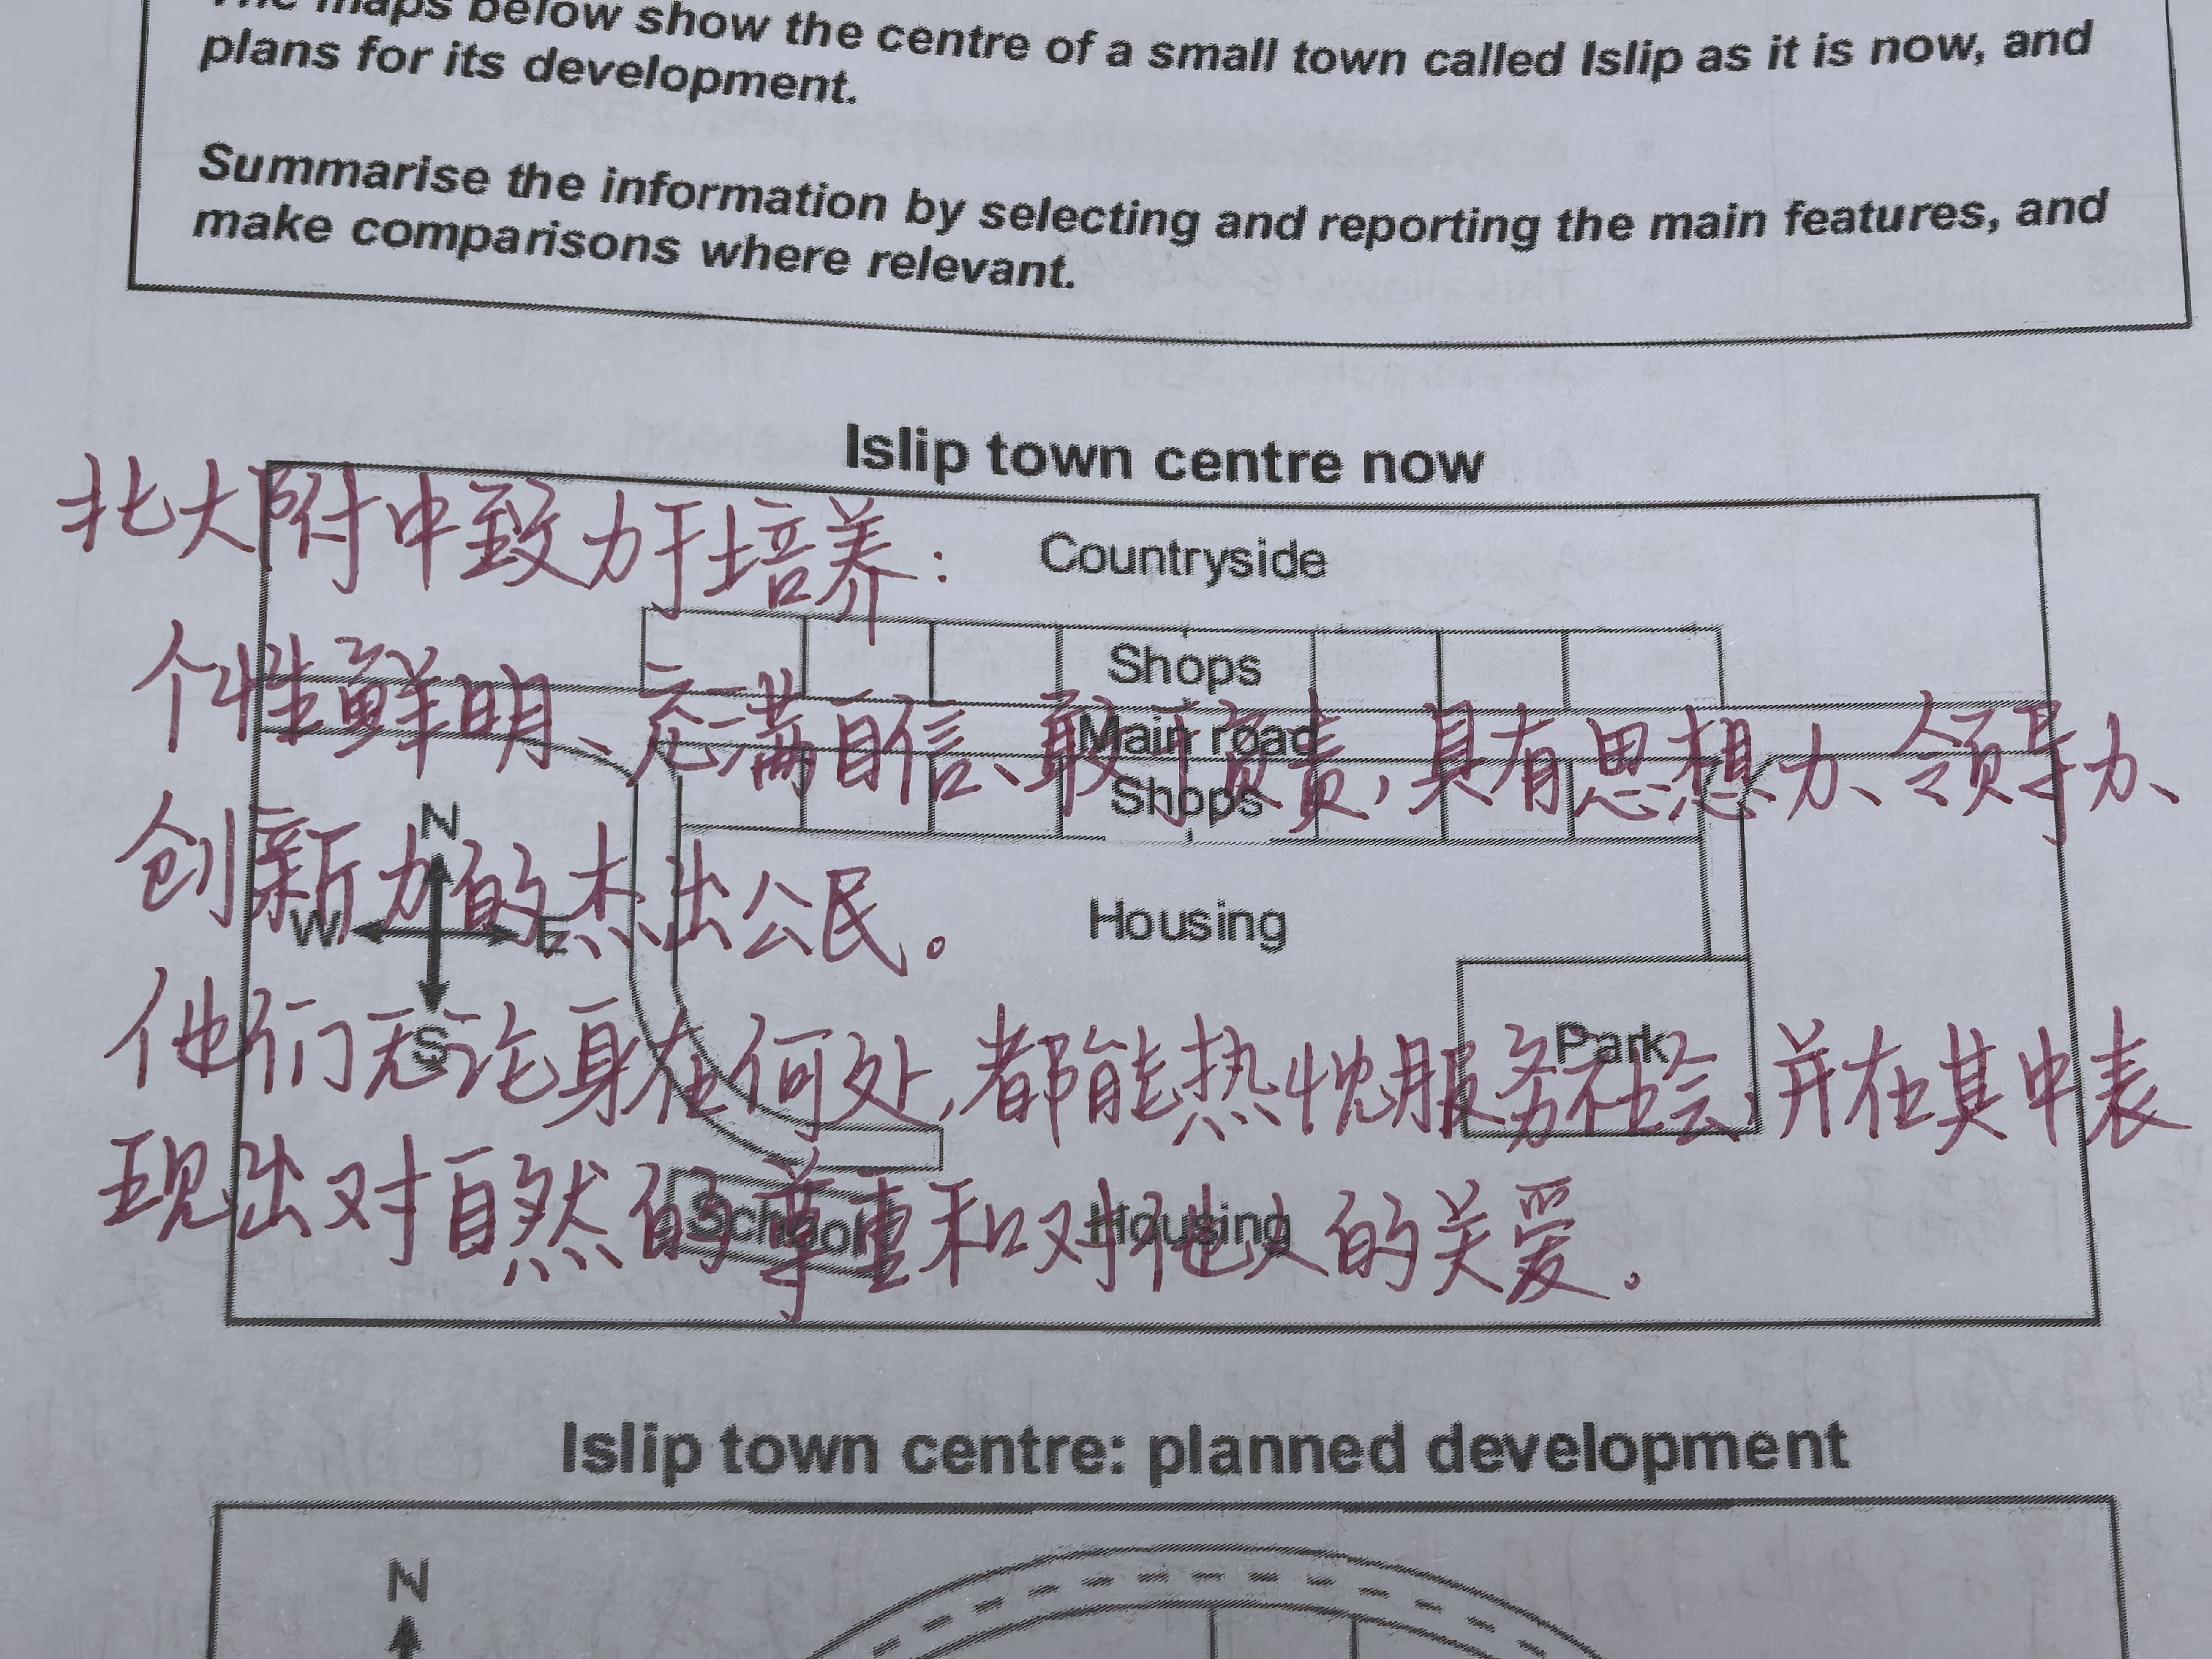 The maps below show the centre of a small town called Islip as it is now, and
plans for its development.
Summarise the information by selecting and reporting the main features, and
make comparisons where relevant.
Islip town centre now
北大附中致力于培养:
Countryside
Shops
个性鲜明、充满自信、敢于负责,具有思想力、领导力、
Main road
Shops
创新力的杰出公民。
N
W
E
S
Housing
他们无论身在何处,都能热忱服务社会,并在其中表
Park
现出对自然的尊重和对他人的关爱。
School
Housing
Islip town centre: planned development
N